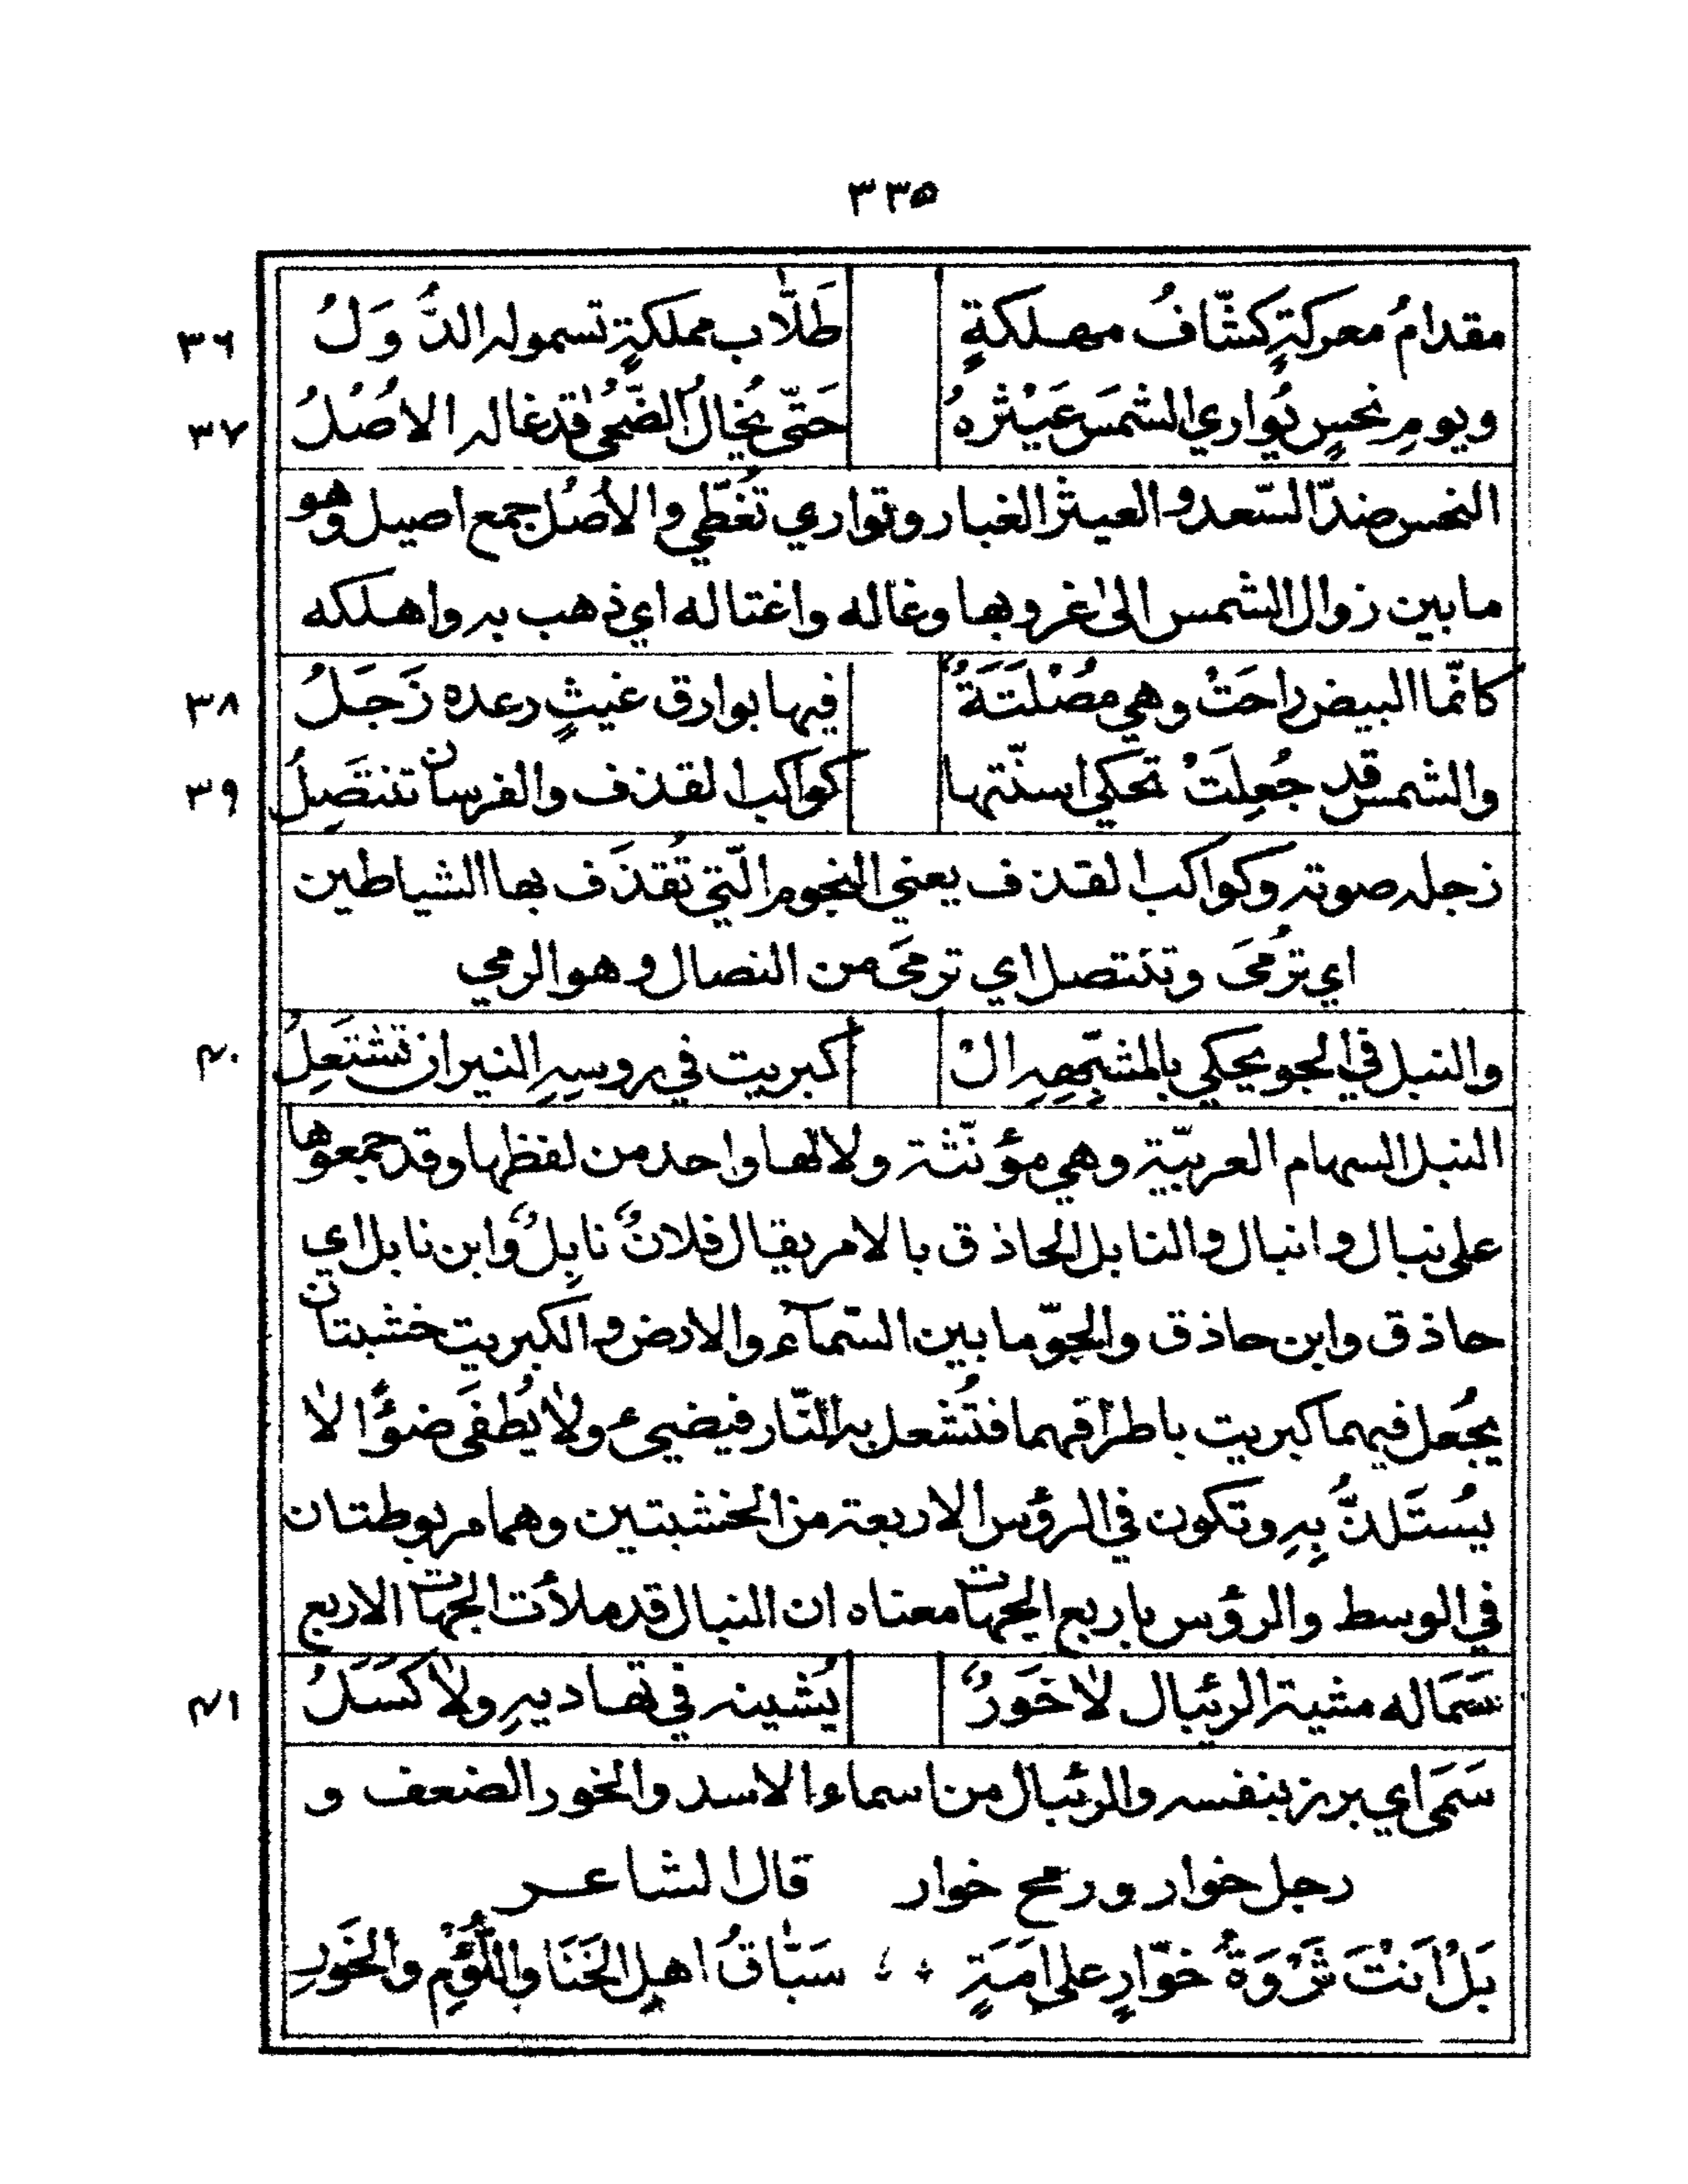 ٣٣٥
مقدامُ معركةٍ كشّافُ مهلكةٍ طَلّاب مملكةٍ تسموله الدُّوَلُ ٣٦
ويومِ نحسٍ يُواري الشمسَ عَيْثرهُ حَتّى يُخالُ الضُّحٰى قد غاله الاُصُلُ ٣٧
النحس ضدّ السّعد والعيثر الغبار وتواري تُغَطّي والأصُل جمع اصيل وهو
ما بين زوال الشمس الى غروبها وغاله واغتاله اي ذهب به واهلكه
كانّما البيض راحَتْ وهي مُصْلَتَةٌ فيها بوارق غيثٍ رعده زَجَلُ ٣٨
والشمس قد جُعِلَتْ تحكي اسنّتها كواكب القذف والفرسان تنتَصِلُ ٣٩
زجله صوته وكواكب القذف يعني النجوم الّتي تُقذَف بها الشياطين
اي تُرمَى وتنتصل اي ترمى من النصال وهو الرمي
والنبل في الجو يحكي بالمشبِّهِهِ الْ كبريت في روسِهِ النيران تشتَعِلُ ٤٠
النبل السهام العربيّة وهي مؤنّثة ولا لها واحد من لفظها وقد جمعوها
على نبال وانبال والنابل الحاذق بالامر يقال فلانٌ نابِلٌ وابن نابل اي
حاذق وابن حاذق والجوّ ما بين السّمآء والارض والكبريت خشبتان
يجُعل فيهما كبريت باطرافهما فتُشعل به النّار فيضيء ولا يُطفَى ضوءًا لا
يُستَلذُّ بِهِ وتكون في الرؤس الاربعة من الخشبتين وهما مربوطتان
في الوسط والرؤس باربع الجهات معناه ان النبال قد ملأت الجهات الاربع
سَمَا له مشية الرئبال لا خَوَرٌ يُشينه في تهاديهِ ولا كَسَلُ ٤١
سَمَى اي برز بنفسه والرئبال من اسماء الاسد والخور الضعف و
رجل خوار ورمح خوار قال الشاعر
بَلْ اَنْتَ نَزْوَةُ خوّارٍ على اَمَةٍ سَبّاقُ اهل الخَنَا واللُؤمِ والخَوَرِ